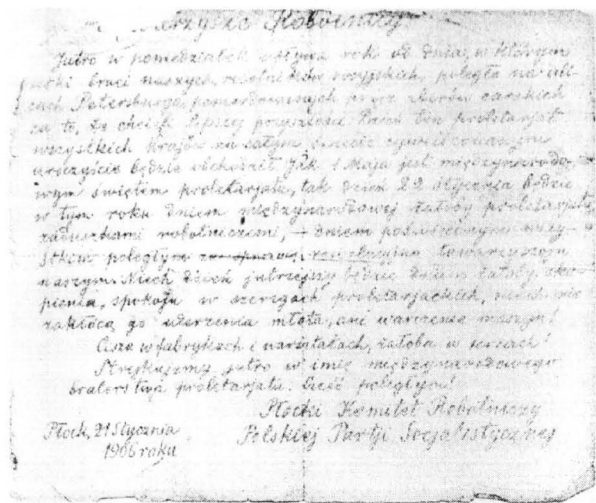 Towarzysze Robotnicy
Jutro w poniedziałek upływa rok od dnia, w którym
setki braci naszych, robotników rosyjskich, poległa na uli-
cach Petersburga, pomordowanych przez zbirów carskich
za to, że chcieli lepszej przyszłości. Dzień ten proletarjat
wszystkich krajów na całym świecie cywilizowanym
uroczyście będzie obchodził. Jak 1 Maja jest międzynarodo-
wym świętem proletarjatu, tak dzień 22 stycznia będzie
w tym roku dniem międzynarodowej żałoby proletarjatu,
zaduszkami robotniczemi, – dniem poświęconym wszy-
stkim poległym za sprawę towarzyszom
naszym. Niech dzień jutrzejszy będzie dniem żałoby, sku-
pienia, spokoju w szeregach proletarjackich, niech nie
zakłócą go uderzenia młota, ani warczenie maszyn!
Cisza w fabrykach i warsztatach, żałoba w sercach!
Strejkujmy jutro w imię międzynarodowego
braterstwa proletarjatu. Cześć poległym!
Płocki Komitet Robotniczy
Polskiej Partji Socjalistycznej
Płock, 21 Stycznia
1906 roku